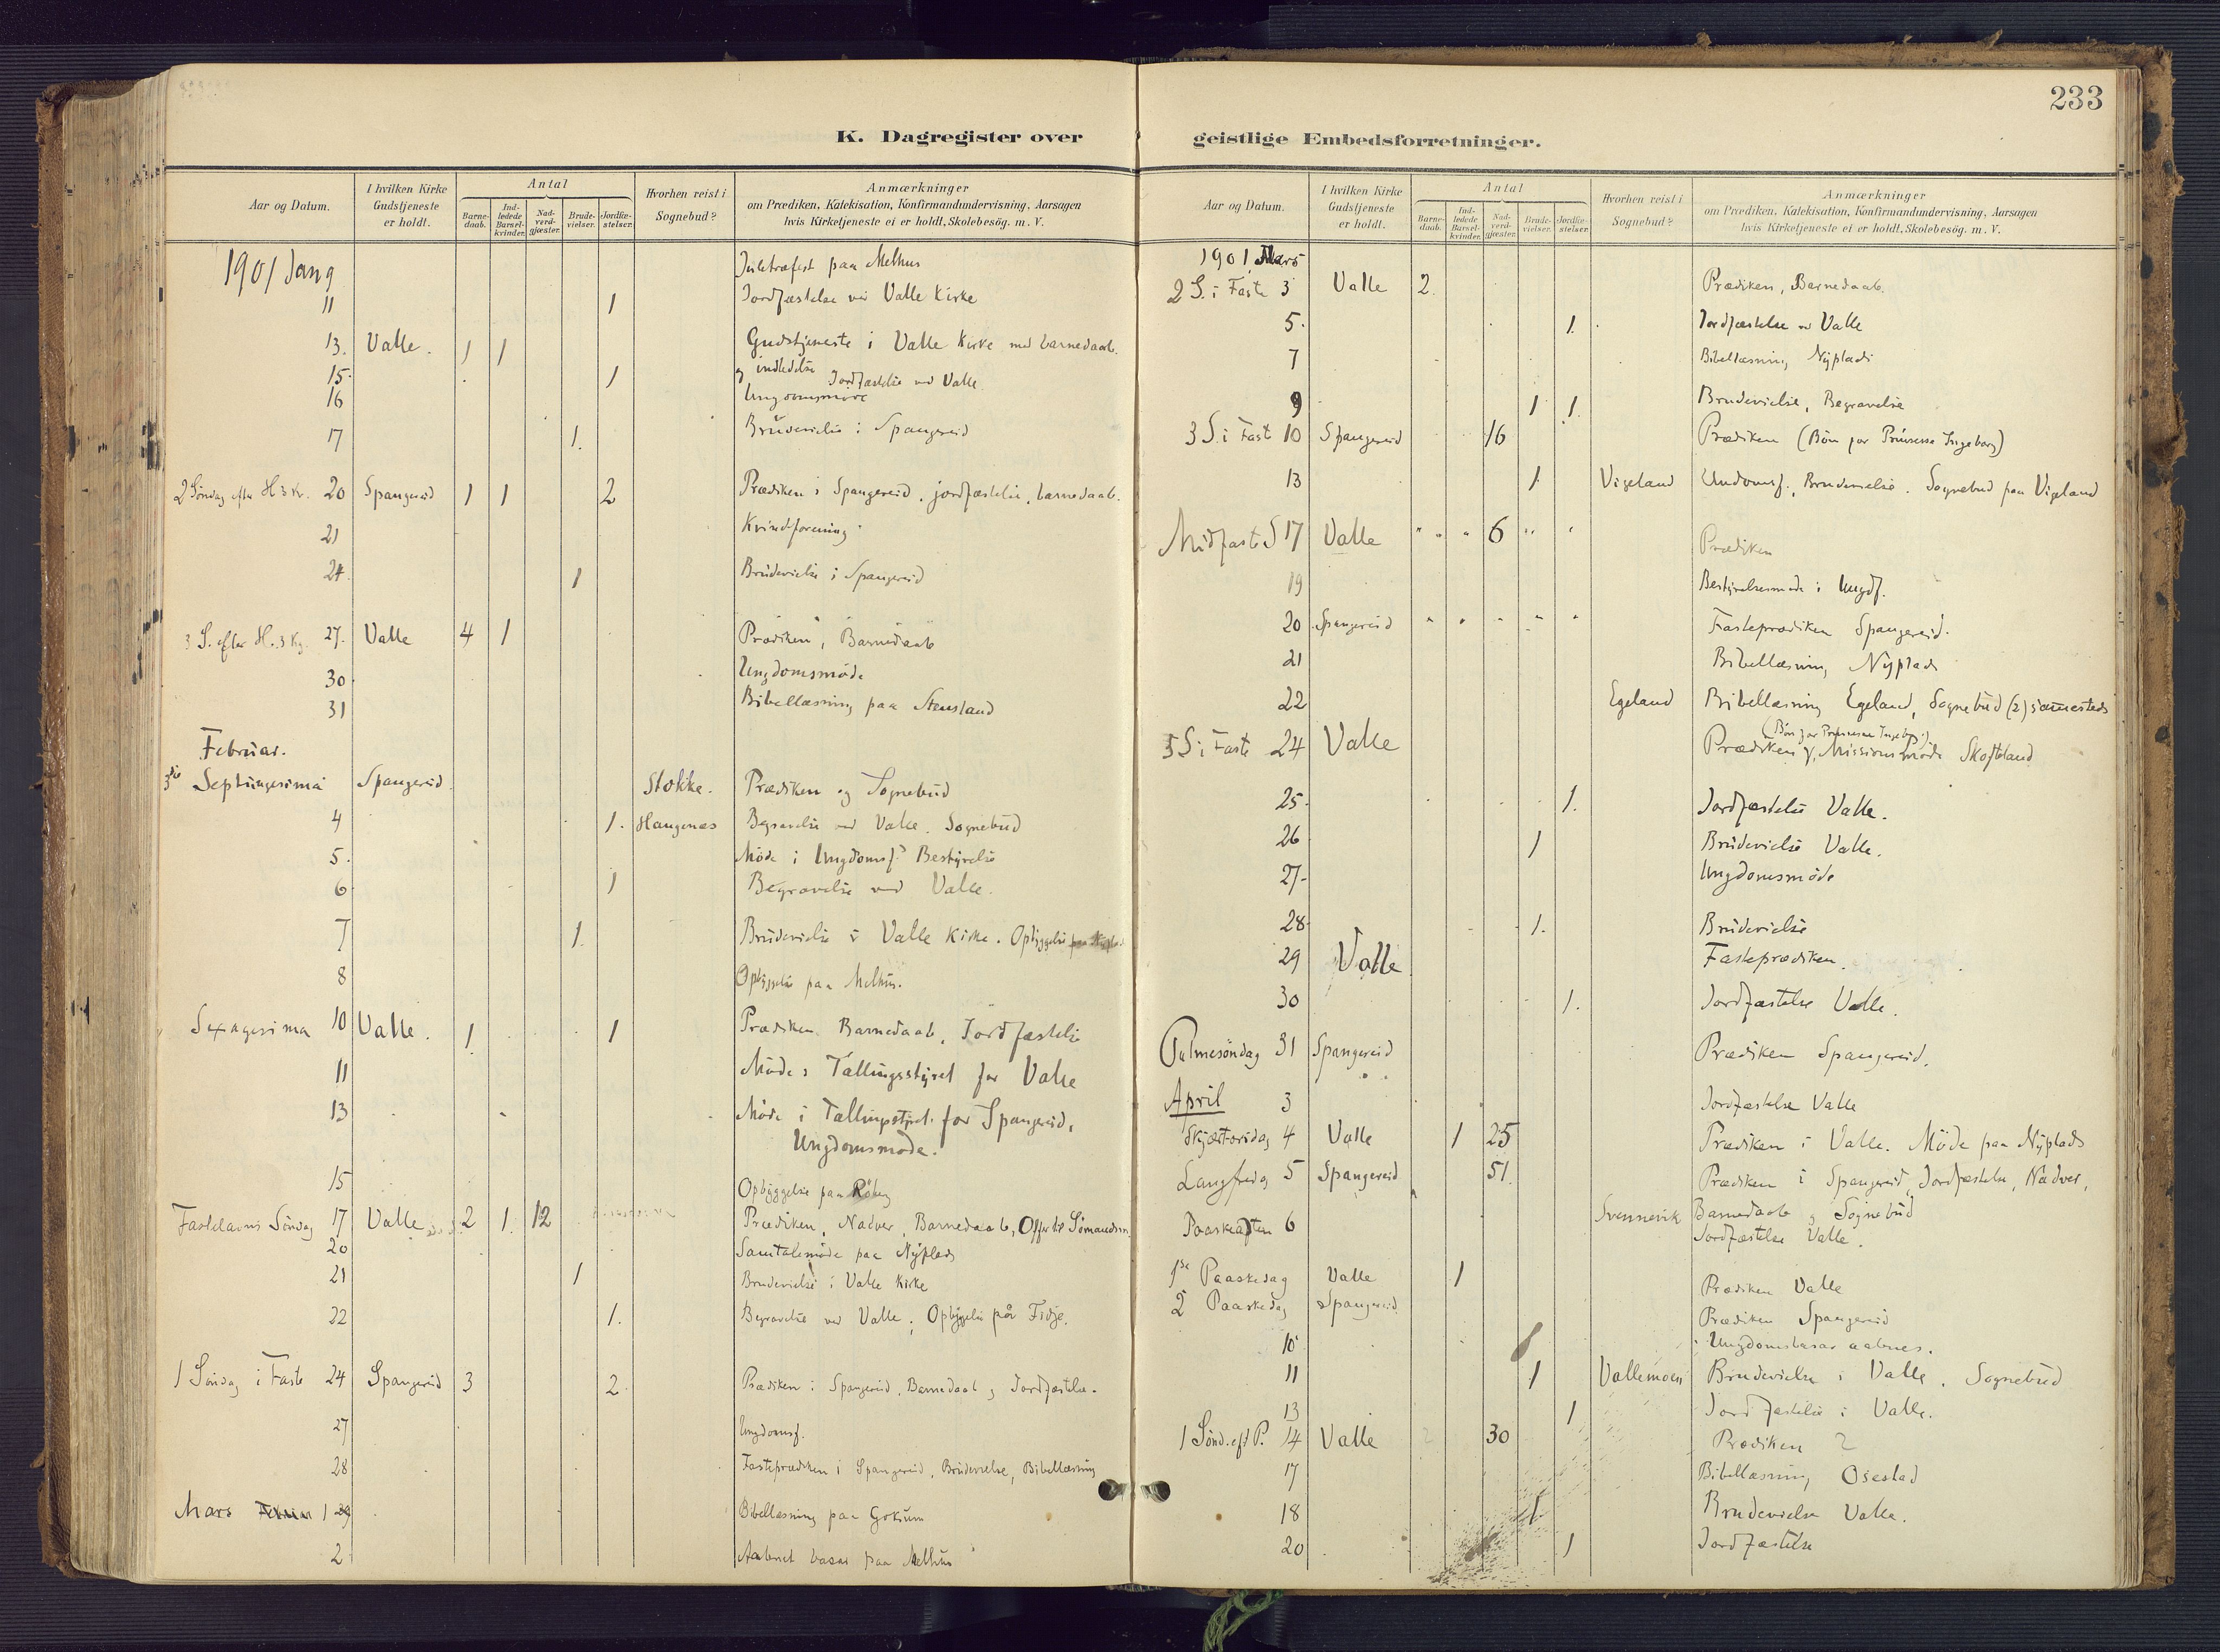 233
K. Dagregister over
Aar og Datum.
I hvilken Kirke Gudstjeneste er holdt.
Antal
Barnedaab.
Indledede Barselkvinder.
Nadverdgjæster.
Brudevielser.
Jordfæstelser.
Hvorhen reist i Sognebud?
Anmærkninger
om Prædiken, Katekisation, Konfirmandundervisning, Aarsagen
hvis Kirketjeneste ei er holdt, Skolebesög. m. V.
1901 Jan 9 Juletræfest paa Melhus
11 1 Jordfæstelse ved Valle Kirke
13. Valle. 1 1 Gudstjeneste i Valle Kirke med barnedaab.
og indledelse
15. 1 Jordfæstelse ved Valle
16 Ungdomsmøde
17 1. Brudevielse i Spangereid
2 Söndag efter H 3 Kr. 20 Spangereid 1 1 2 Prædiken i Spangereid, jordfæstelse, barnedaab.
21 Kvindeforening
24. 1 Brudevielse i Spangereid
3 S. efter H. 3 Kg. 27. Valle 4 1 Prædiken, Barnedaab
30 Ungdomsmöde
31 Bibellæsning paa Stensland
Februar.
3die Septuagesima Spangereid. Stokke. Prædiken og Sognebud
4 1. Haugenæs Begravelse ved Valle. Sognebud
5. Möde i Ungdomsf. Bestyrelse
6 1 Begravelse ved Valle.
7 1. Brudevielse i Valle Kirke. Opbyggelse
8 Opbyggelse paa Melhus.
Sexagesima 10 Valle. 1. 1 Prædiken Barnedaab, Jordfæstelse
11 Möde i Tællingsstyret for Valle
13 Möde i Tællingsstyret for Spangereid,
Ungdomsmøde.
15 Opbyggelse paa
Fastelavns Söndag 17 Valle 2 1. 12 Prædiken, Nadver, Barnedaab, Offer til Sömandsm.
20 Samtalemöde paa Nyplads
21 1 Brudevielse i Valle Kirke
22 1. Begravelse ved Valle; Opbyggelse på Fidje.
1 Söndag i Faste 24 Spangereid 3 2 Prædiken i Spangereid, Barnedaab og Jordfæstelse.
27 Ungdomsf.
28 Fasteprædiken i Spangereid, Brudevielse, Bibellæsning
Mars 1 Bibellæsning paa
2 Aabnet basar paa Melhus
geistlige Embedsforretninger.
Aar og Datum.
I hvilken Kirke Gudstjeneste er holdt.
Antal
Barnedaab.
Indledede Barselkvinder.
Nadverdgjæster.
Brudevielser.
Jordfæstelser.
Hvorhen reist i Sognebud?
Anmærkninger
om Prædiken, Katekisation, Konfirmandundervisning, Aarsagen
hvis Kirketjeneste ei er holdt, Skolebesög. m. V.
1901 Mars
2 S. i Faste 3 Valle 2. Prædiken, Barnedaab.
5. 1. Jordfæstelse ved Valle
7 Bibellæsning Nyplads
9 1 1. Brudevielse, Begravelse
3 S. i Fast 10 Spangereid 16 Prædiken (Bön for Prinsesse Ingeborg)
13 1. Vigeland Ungdomsf., Brudevielse. Sognebud paa Vigeland
Midfaste S 17 Valle " " " 6 " " Prædiken
19 Bestyrelsesmøde i Ungdf.
20 Spangereid " " " " " Fasteprædiken Spangereid.
21 Bibellæsning Nyplads
22 Egeland Bibellæsning Egeland, Sognebud (2) sammesteds
(Bön for Prinsesse Ingeborg)
5 S. i Faste 24 Valle Prædiken, Missionsmöde Skofteland
25. 1. Jordfæstelse Valle.
26 1 Brudevielse Valle.
27. Ungdomsmöde
28. 1. Brudevielse
29 Valle Fasteprædiken.
30 1. Jordfæstelse Valle.
Palmesöndag 31 Spangereid Prædiken Spangereid.
April 3 Jordfæstelse Valle
Skjærtorsdag 4 Valle 1 25 Prædiken i Valle. Möde paa Nyplads
Langfredag 5 Spangereid 51. Prædiken i Spangereid, Jordfæstelse, Nadver,
Paaskeaften 6 Svennevik Barnedaab og Sognebud
Jordfæstelse Valle.
1ste Paaskedag Valle 1 Prædiken Valle
2 Paaskedag Spangereid Prædiken Spangereid
10 Ungdomsbasar aabnes.
11 1 Vallemoen Brudevielse i Valle. Sognebud
13 1 Jordfæstelse i Valle.
1 Sönd. eft P. 14 Valle 30 Prædiken 2
17 Bibellæsning Osestad
18 1 Brudevielse Valle.
20 1 Jordfæstelse